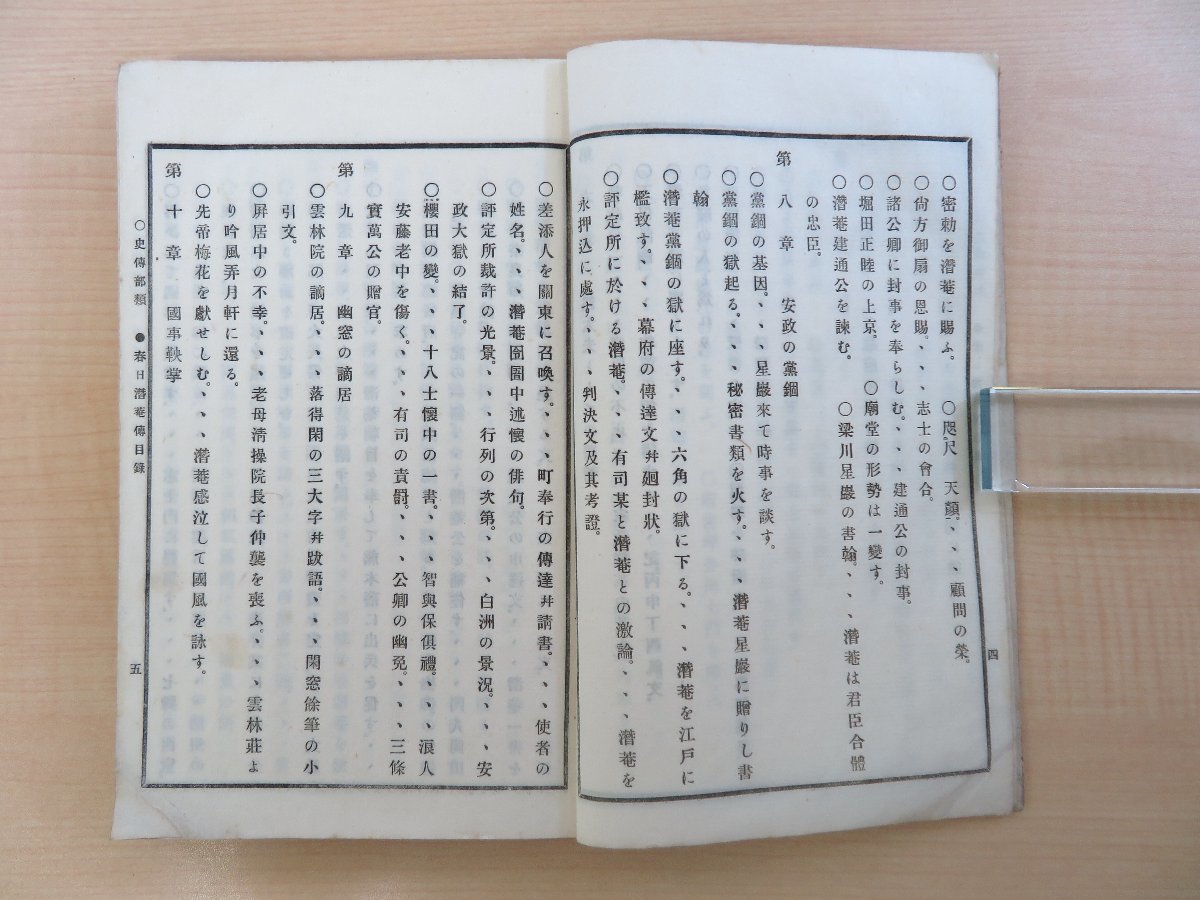 ○密勅を潛菴に賜ふ。 ○咫尺 天顔。、、、顧問の榮。
○尙方御扇の恩賜。、、、志士の會合。
○諸公卿に封事を奉らしむ。、、、建通公の封事。
○堀田正睦の上京。 ○廟堂の形勢は一變す。
○潛菴建通公を諫む。 ○梁川星巖の書翰。、、、潛菴は君臣合體
の忠臣。
第八章 安政の黨錮
○黨錮の基因。、、、星巖來て時事を談す。
○黨錮の獄起る。、、、秘密書類を火す。、、、潛菴星巖に贈りし書
翰
○潛菴黨錮の獄に座す。、、、六角の獄に下る。、、、潛菴を江戸に
檻致す。、、、幕府の傳達文幷廻封狀。
○評定所に於ける潛菴。、、、有司某と潛菴との激論。、、、潛菴を
永押込に處す。、、、判決文及其考證。
四
○差添人を關東に召喚す。、、、町奉行の傳達幷請書。、、、使者の
姓名。、、、潛菴囹圄中述懷の俳句。
○評定所裁許の光景。、、、行列の次第。、、、白洲の景況。、、、安
政大獄の結了。
○櫻田の變。、、、十八士懷中の一書。、、、智與保俱禮。、、、浪人
安藤老中を傷く。、、、有司の責罸。、、、公卿の幽免。、、、三條
實萬公の贈官。
第九章 幽窓の謫居
○雲林院の謫居。、、、落得閑の三大字幷跋語。、、、閑窓餘筆の小
引文。
○屛居中の不幸。、、、老母淸操院長子仲襲を喪ふ。、、、雲林莊よ
り吟風弄月軒に還る。
○先帝梅花を獻せしむ。、、、潛菴感泣して國風を詠す。
第十章 國事鞅掌
○史傳部類 ●春日潛菴傳目錄
五